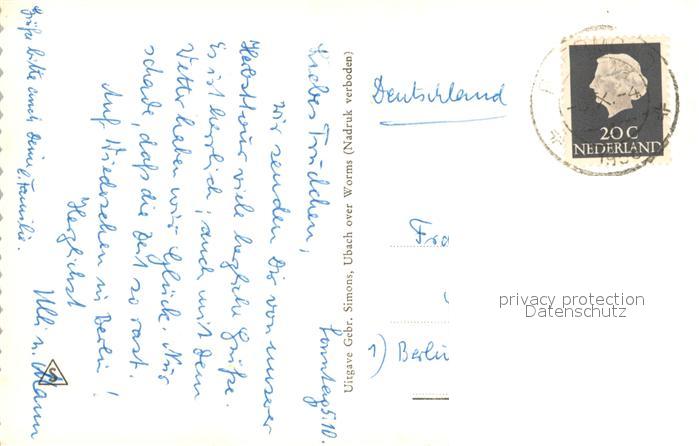 Sonntag 5.10.
Liebes Trudchen,
wir senden Dir von unserer
Herbsttour viele herzliche Grüße.
Es ist herrlich, auch mit dem
Wetter haben wir Glück. Nur
schade, daß die Zeit so rast.
Auf Wiedersehen in Berlin!
Herzlichst
Ulli u. Mann
Grüße bitte auch Deine l. Familie.
Uitgave Gebr. Simons, Ubach over Worms (Nadruk verboden)
Deutschland
20 C
NEDERLAND
1)  Berli
privacy protection
Datenschutz